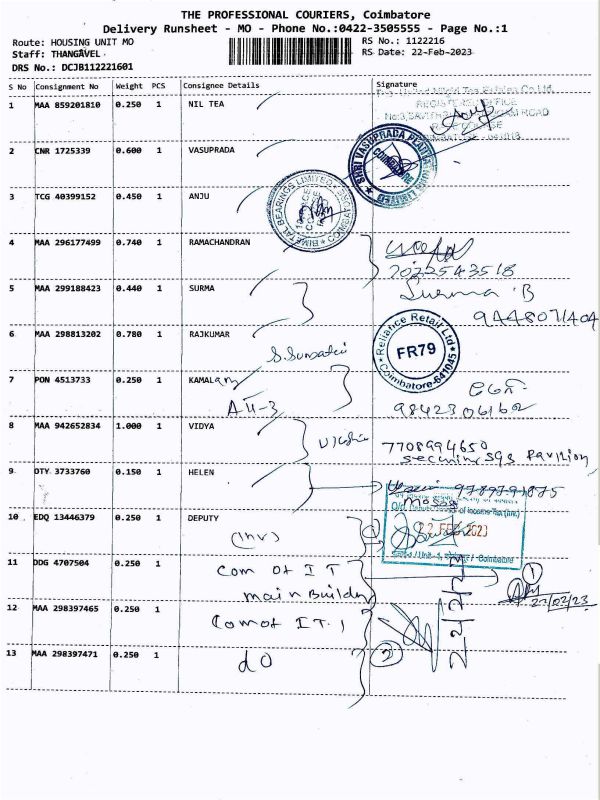 THE PROFESSIONAL COURIERS, Coimbatore
Delivery Runsheet - MO - Phone No.:0422-3505555 - Page No.:1
Route: HOUSING UNIT MO
RS No.: 1122216
Staff: THANGAVEL
RS Date: 22-Feb-2023
DRS No.: DCJB112221601
S No Consignment No Weight PCS Consignee Details Signature
1 MAA 859201810 0.250 1 NIL TEA
REGISTERED OFFICE
2 CNR 1725339 0.600 1 VASUPRADA
SHRI VASUPRADA PLANTATIONS
COIMBATORE
3 TCG 40399152 0.450 1 ANJU
BIMETAL BEARINGS LIMITED
4 MAA 296177499 0.740 1 RAMACHANDRAN
7022543518
5 MAA 299188423 0.440 1 SURMA
Surma B
9448071404
6 MAA 298813202 0.780 1 RAJKUMAR
S. Sumathi
Reliance Retail Ltd
FR79
Coimbatore-641045
7 PON 4513733 0.250 1 KAMALam
AII-3
9842306162
8 MAA 942652834 1.000 1 VIDYA
7708994650
Pavilion
9 OTY 3733760 0.150 1 HELEN
10 EDQ 13446379 0.250 1 DEPUTY
(Inv)
of Income Tax (Inv.)
22 FEB 2023
Coimbatore
11 DDG 4707504 0.250 1
Com of IT
main Builder
1
22/02/23
12 MAA 298397465 0.250 1
Com of I.T.
22/2/23
13 MAA 298397471 0.250 1
do
2